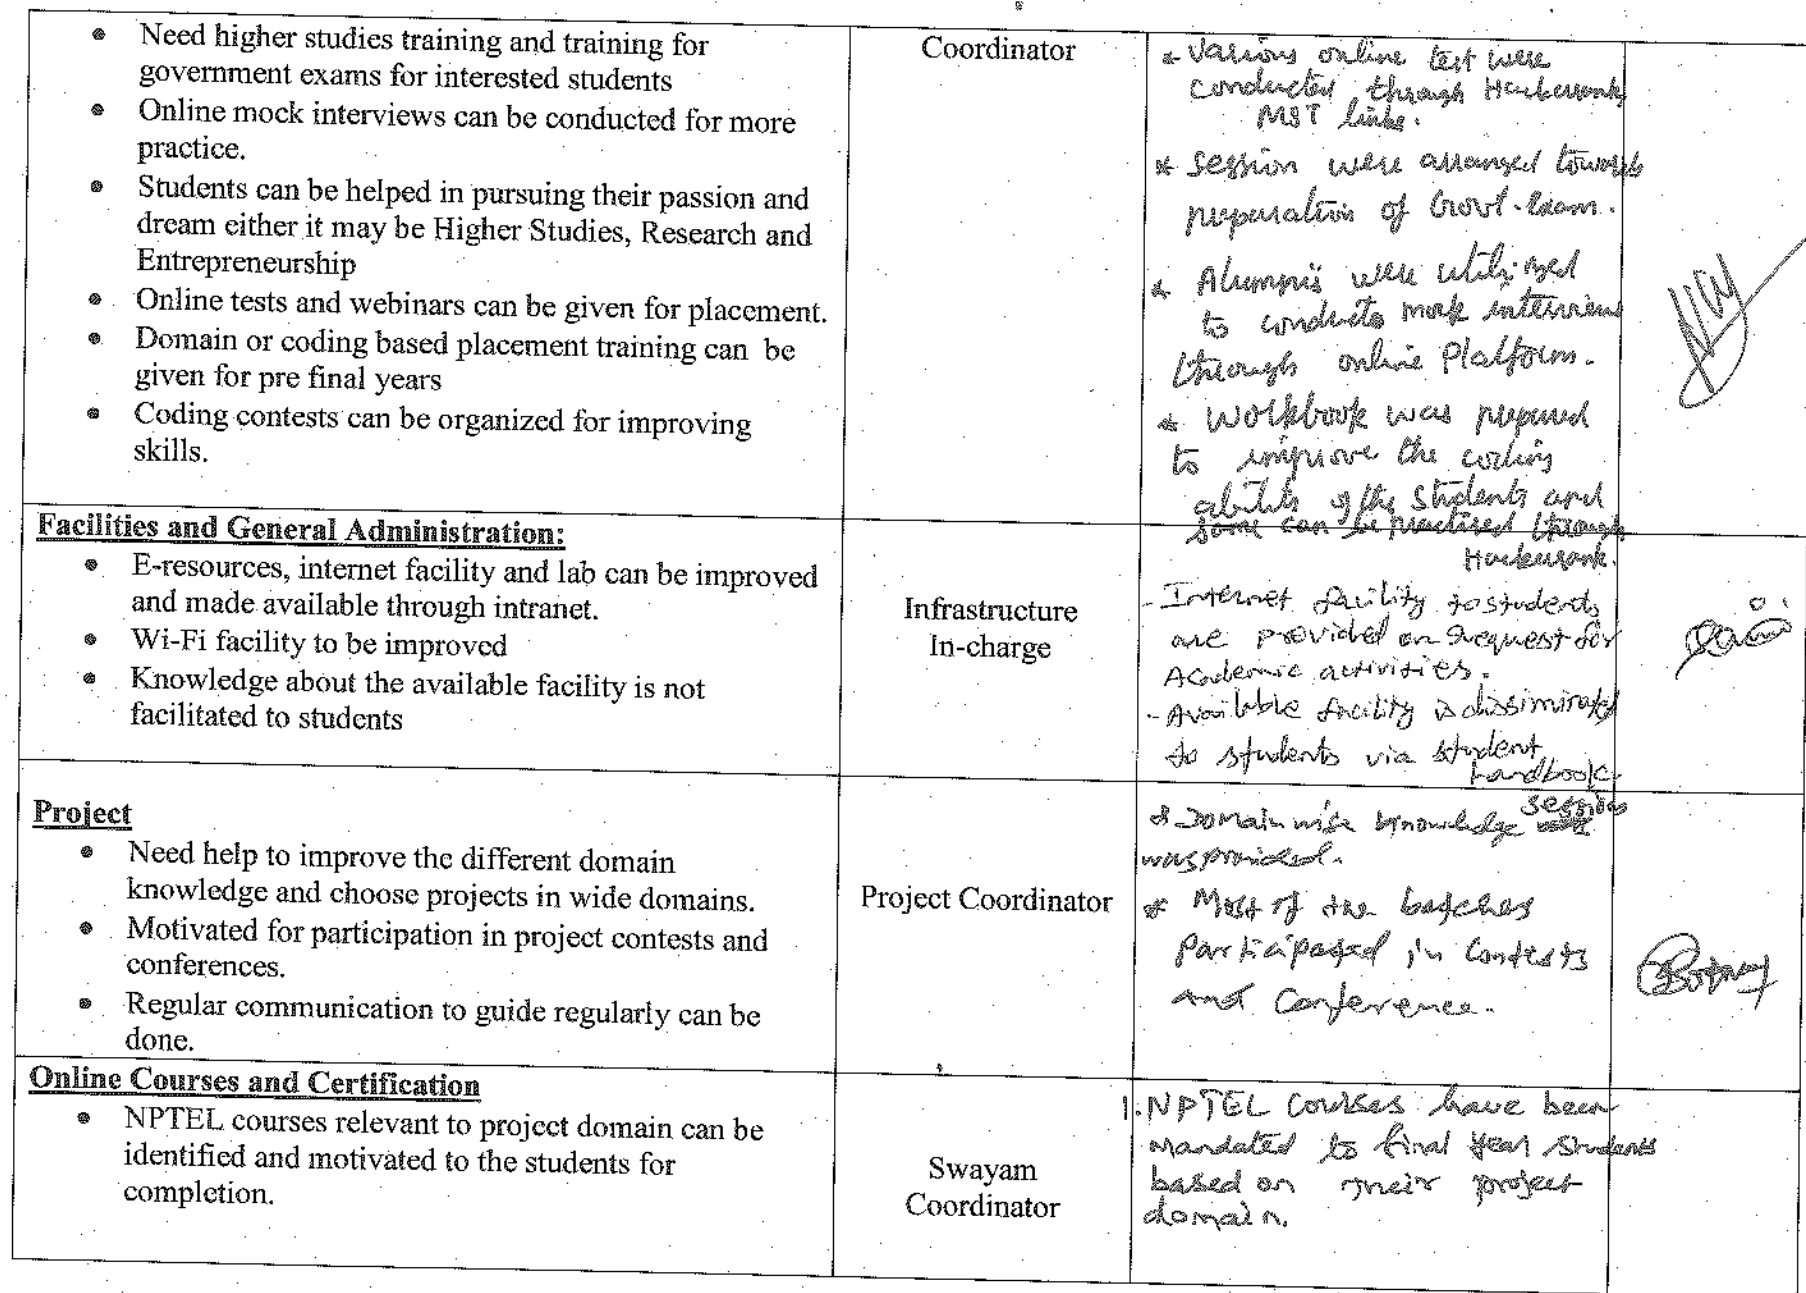 • Need higher studies training and training for
government exams for interested students
• Online mock interviews can be conducted for more
practice.
• Students can be helped in pursuing their passion and
dream either it may be Higher Studies, Research and
Entrepreneurship
• Online tests and webinars can be given for placement.
• Domain or coding based placement training can be
given for pre final years
• Coding contests can be organized for improving
skills.
Coordinator
* Various online test were
conducted through Hackerrank,
links.
* Session were arranged towards
preparation of Govt. Exam.
* Alumni's were utilized
to conducts mock interviews
through online Platform.
* Workbook was prepared
to improve the coding
of the students and
some can be practised through
Hackerrank.
Facilities and General Administration:
• E-resources, internet facility and lab can be improved
and made available through intranet.
• Wi-Fi facility to be improved
• Knowledge about the available facility is not
facilitated to students
Infrastructure
In-charge
- Internet facility to students
are provided on request for
Academic activities.
- Available facility is dissiminated
to students via student
handbook.
Project
• Need help to improve the different domain
knowledge and choose projects in wide domains.
• Motivated for participation in project contests and
conferences.
• Regular communication to guide regularly can be
done.
Project Coordinator
* Domain wise knowledge session
was provided.
* Most of the batches
participated in Contests
and Conference.
Online Courses and Certification
• NPTEL courses relevant to project domain can be
identified and motivated to the students for
completion.
Swayam
Coordinator
1. NPTEL Courses have been
Mandated to final year students
based on their project
domain.